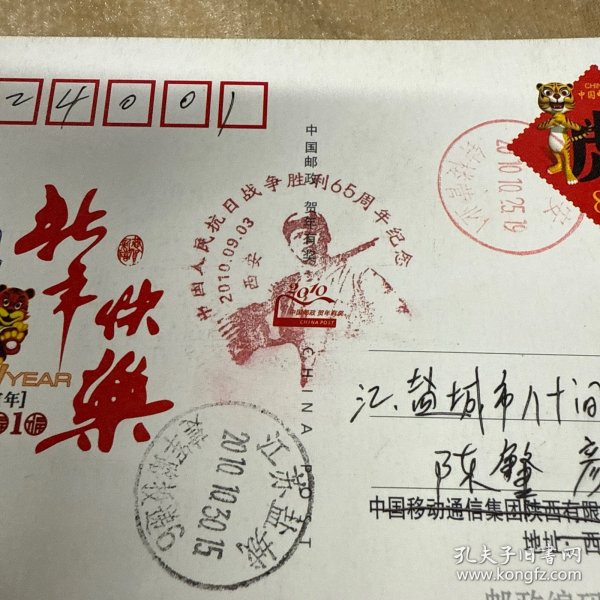 24001
CHIN
中国邮
中国邮政 贺年有奖
CHINA PO T
中国人民抗日战争胜利65周年纪念
2010.09.03
西安
2010
中国邮政 贺年有奖
CHINA POST
西安
2010.10.25.19
新年快樂
YEAR
年]
江苏盐城
2010.10.30.15
江.盐城市八十间
陈
彦
中国移动通信集团陕西有限
孔夫子旧书网
www.kongfz.com